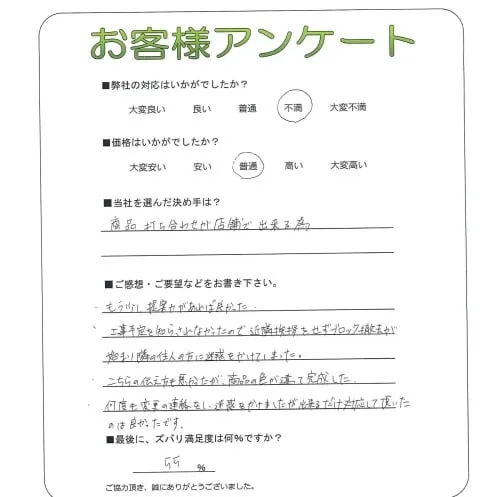 お客様アンケート
■弊社の対応はいかがでしたか？
大変良い 良い 普通 不満 大変不満
■価格はいかがでしたか？
大変安い 安い 普通 高い 大変高い
■当社を選んだ決め手は？
商品 打ち合わせが店舗で出来る為
■ご感想・ご要望などをお書き下さい。
・もう少し提案力があれば良かった．
・工事予定を知らされなかったので近隣挨拶をせずブロック撤去が
始まり隣の住人の方に迷惑をかけてしまいました。
・こちらの伝え方も悪かったが、商品の色が違って完成した．
・何度も変更の連絡をし、迷惑をかけましたが出来るだけ対応して頂いた
のは良かったです．
■最後に、ズバリ満足度は何％ですか？
55 ％
ご協力頂き、誠にありがとうございました。